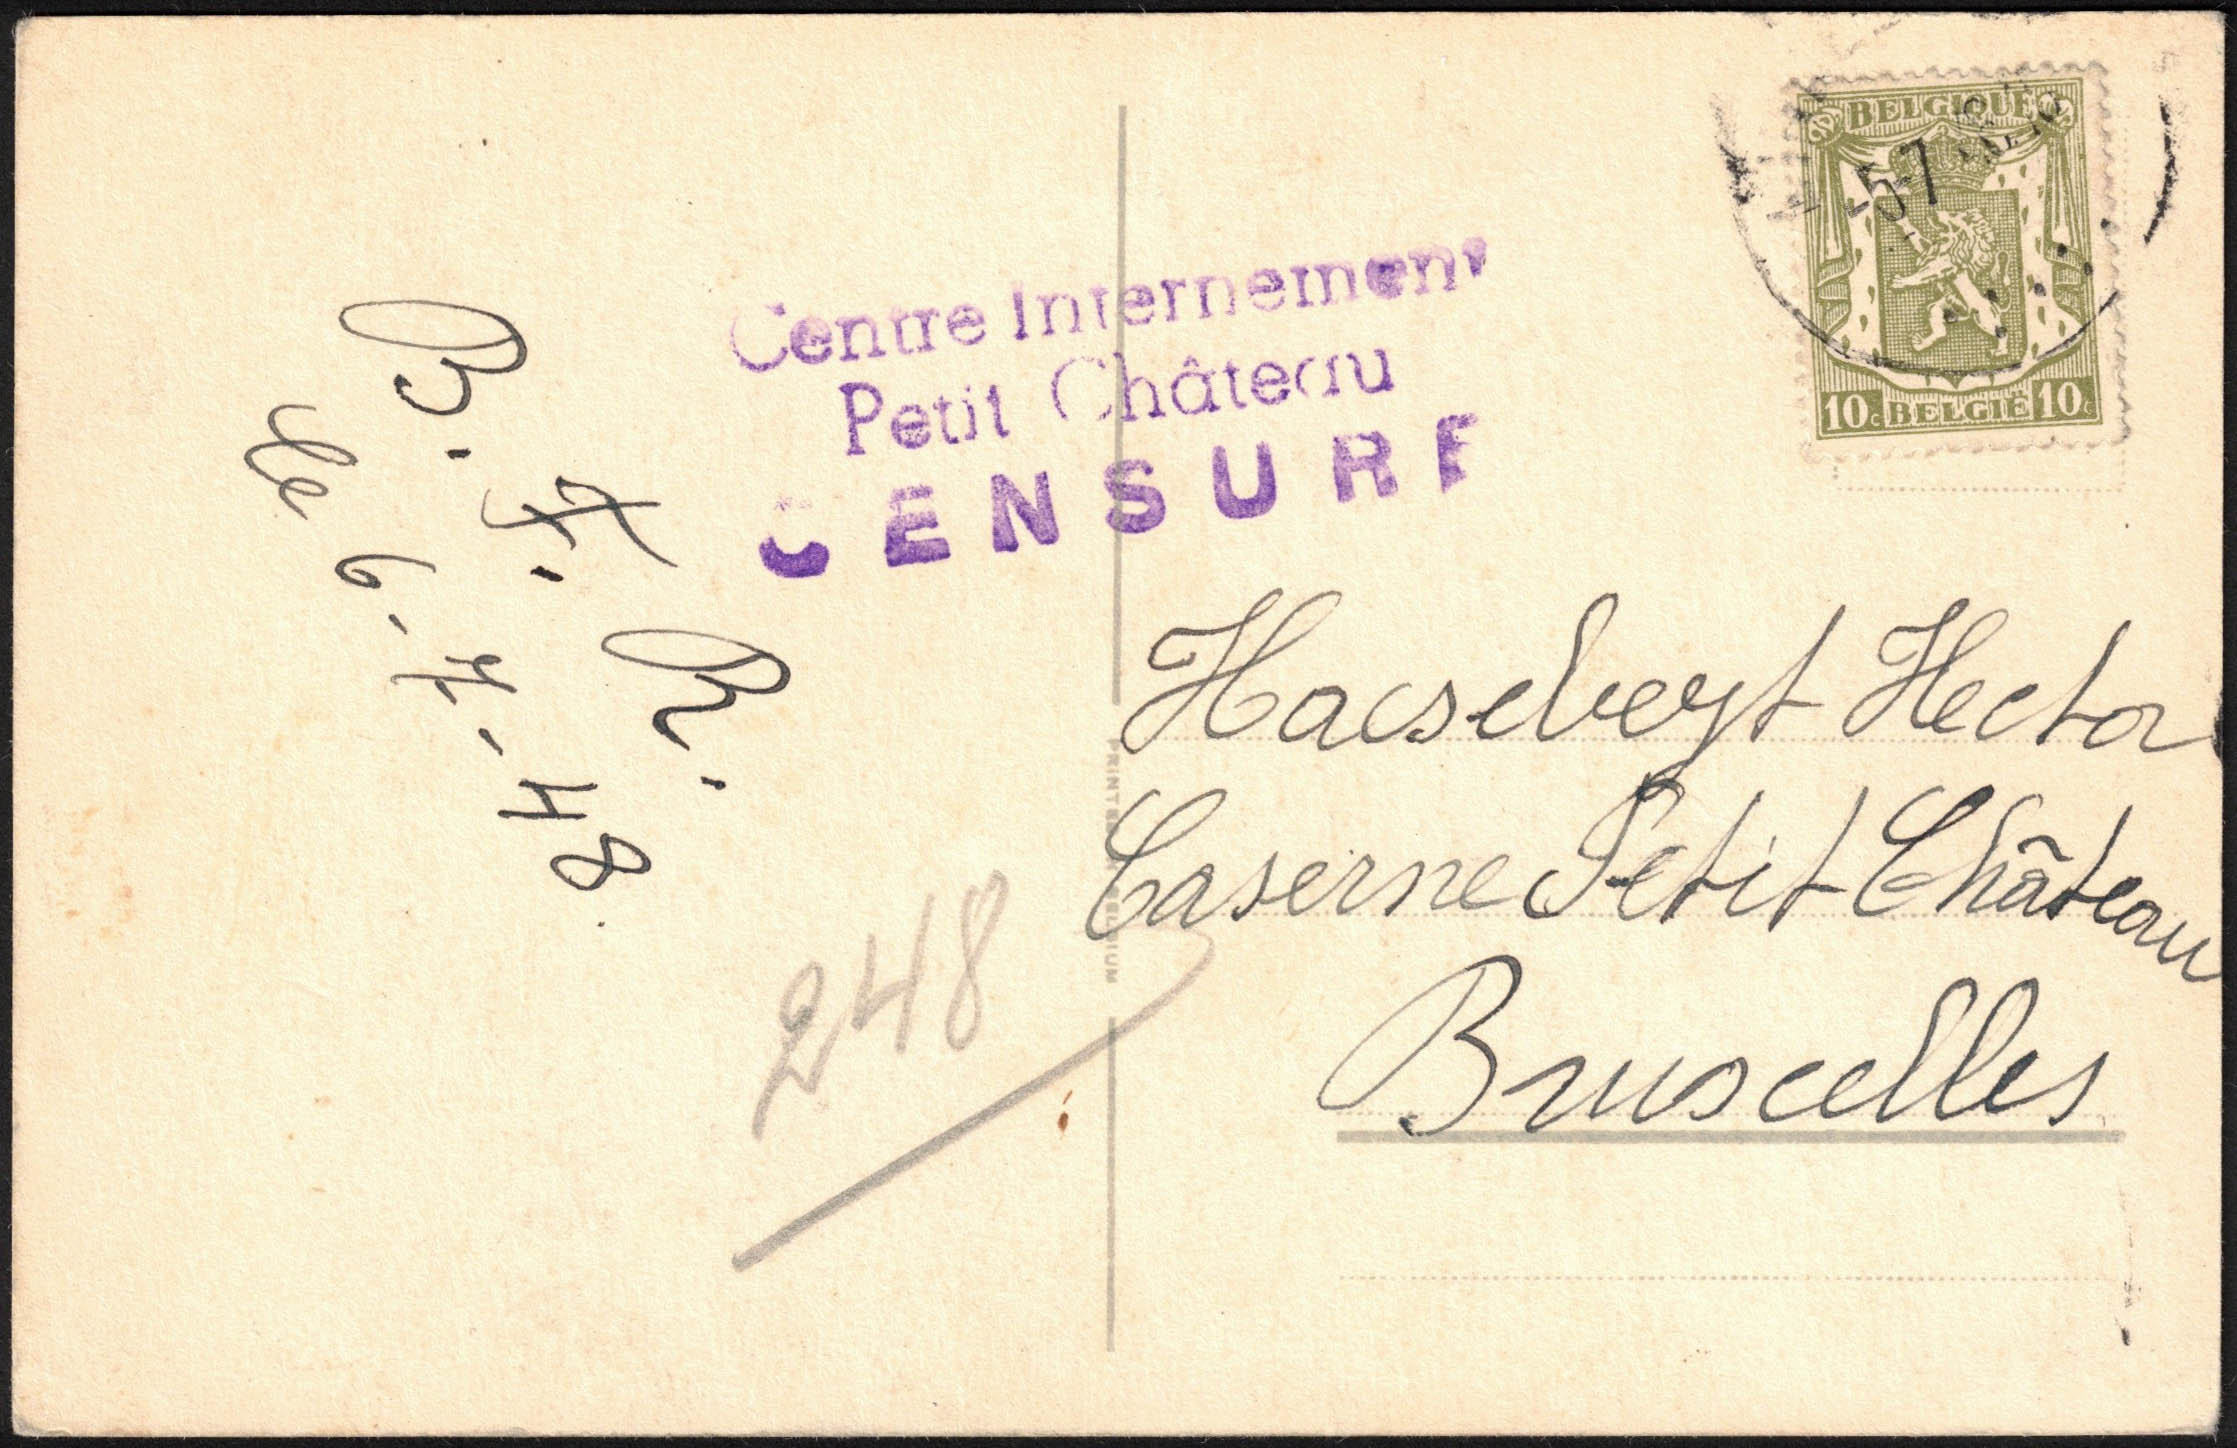 B. F. R.
le 6-7-48
Centre Internement
Petit Château
CENSURE
248
BELGIQUE
5-7
10c BELGIË 10c
Haeseveyt Hector
Caserne Petit Château
Bruxelles
PRINTED IN BELGIUM